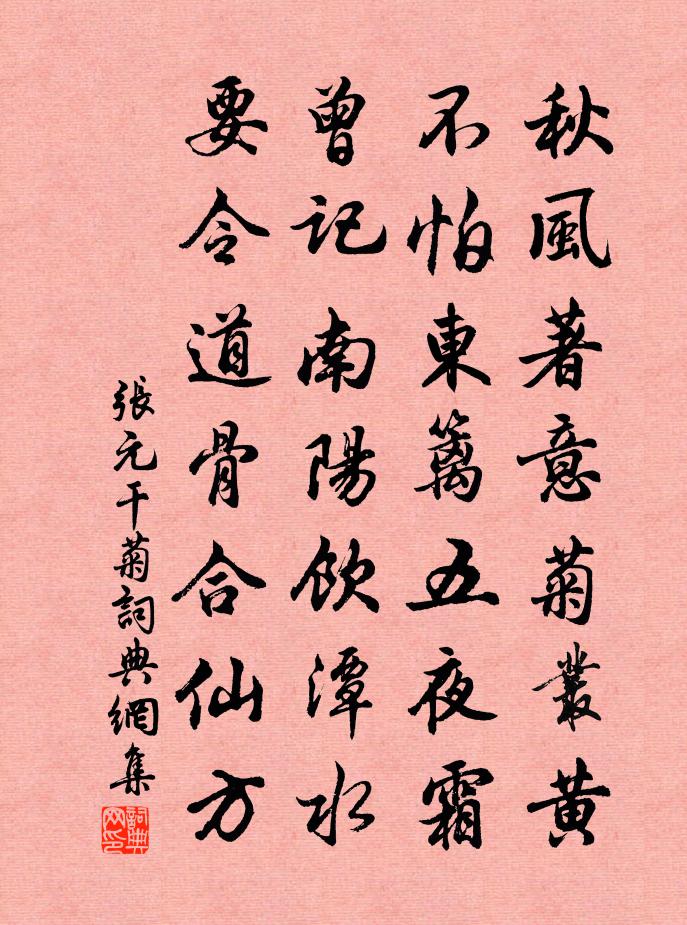 秋風著意菊叢黃
不怕東籬五夜霜
曾記南陽飲潭水
要令道骨合仙方
張元干菊詞典網集
詞典网印